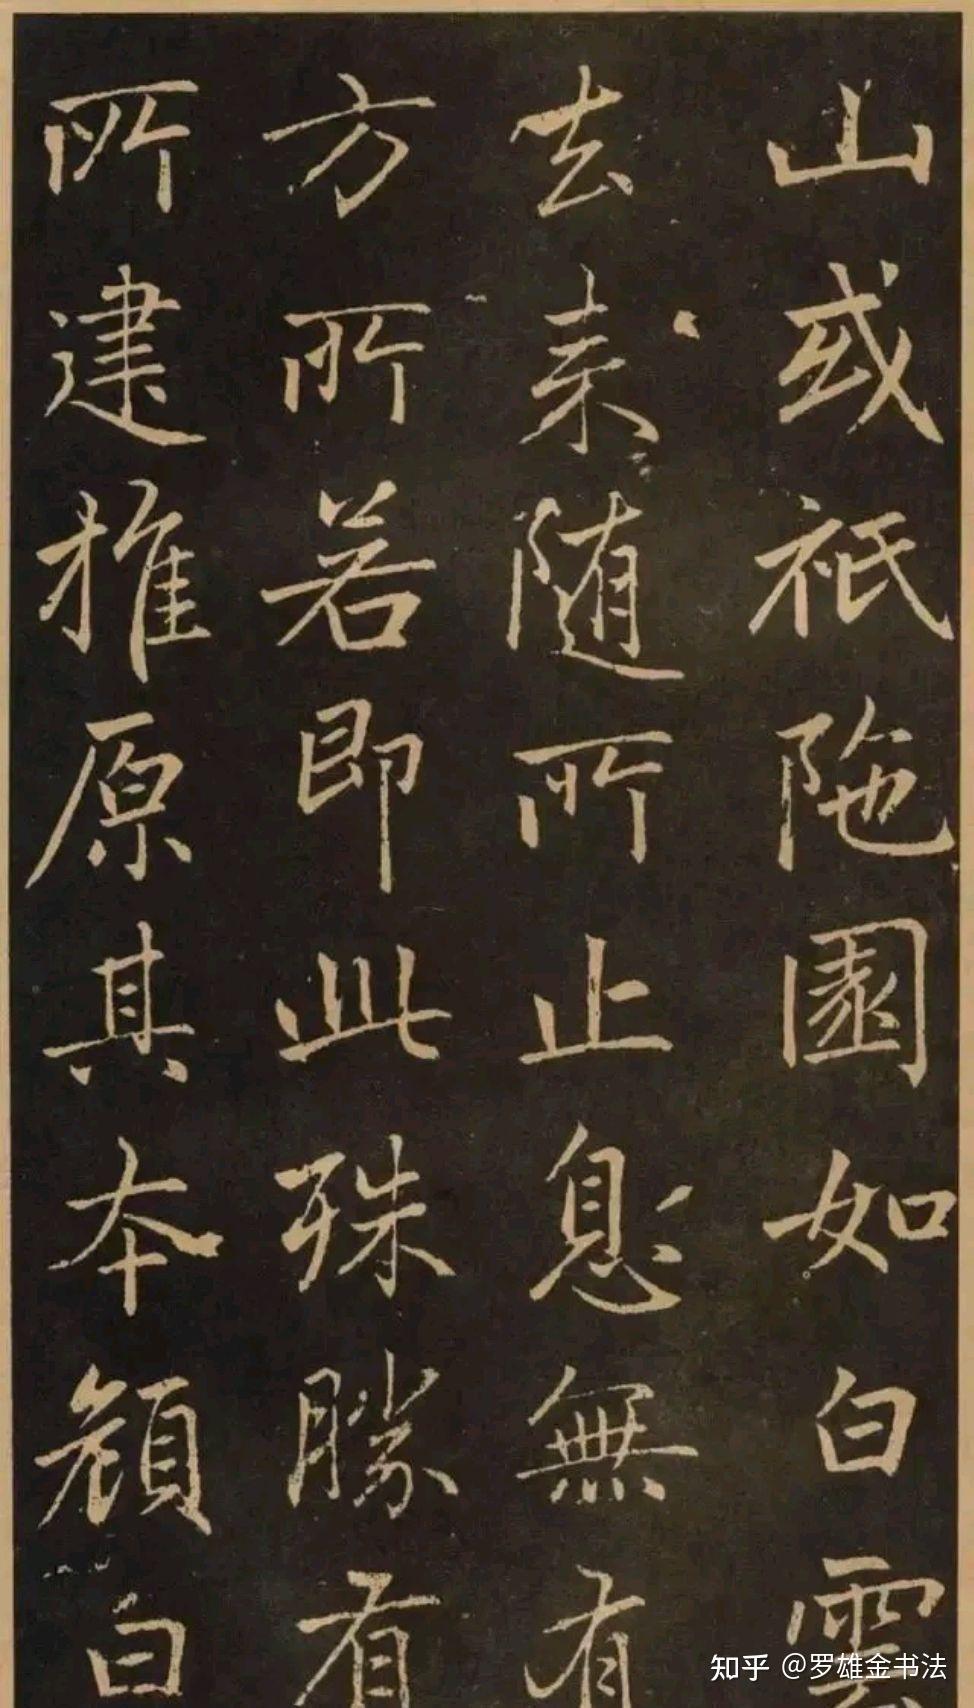 山或祇陁園如白雲
去来随所止息無有
方所若即此殊勝有
所建推原其本領白
知乎 @罗雄金书法